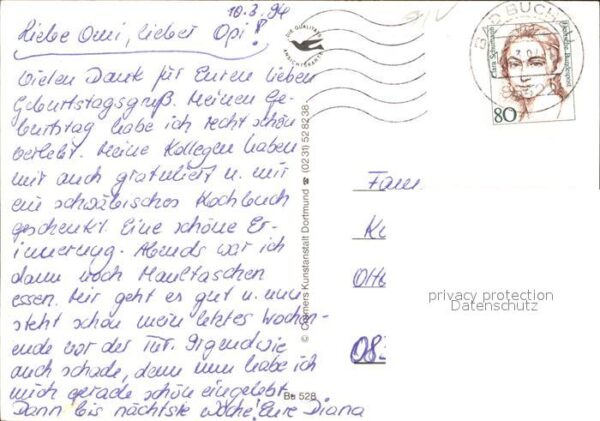 10.3.94
Liebe Omi, lieber Opi!
Vielen Dank für Euren lieben
Geburtstagsgruß. Meinen Ge-
burtstag habe ich recht schön
verlebt. Meine Kollegen haben
mir auch gratuliert u. mir
ein schwäbisches Kochbuch
geschenkt. Eine schöne Er-
innerung. Abends war ich
dann noch Maultaschen
essen. Mir geht es gut u. nun
steht schon mein letztes Wochen-
ende vor der Tür. Irgendwie
auch schade, denn nun habe ich
mich gerade schön eingelebt.
Dann bis nächste Woche! Eure Diana
DIE QUALITÄTS
ANSICHTSKARTE
© Cramers Kunstanstalt Dortmund ☎ (02 31) 52 82 38
Bs 528
BAD BUCH
Clara Schumann
Deutsche Bundespost
80
Fam
K
Otte
08
privacy protection
Datenschutz